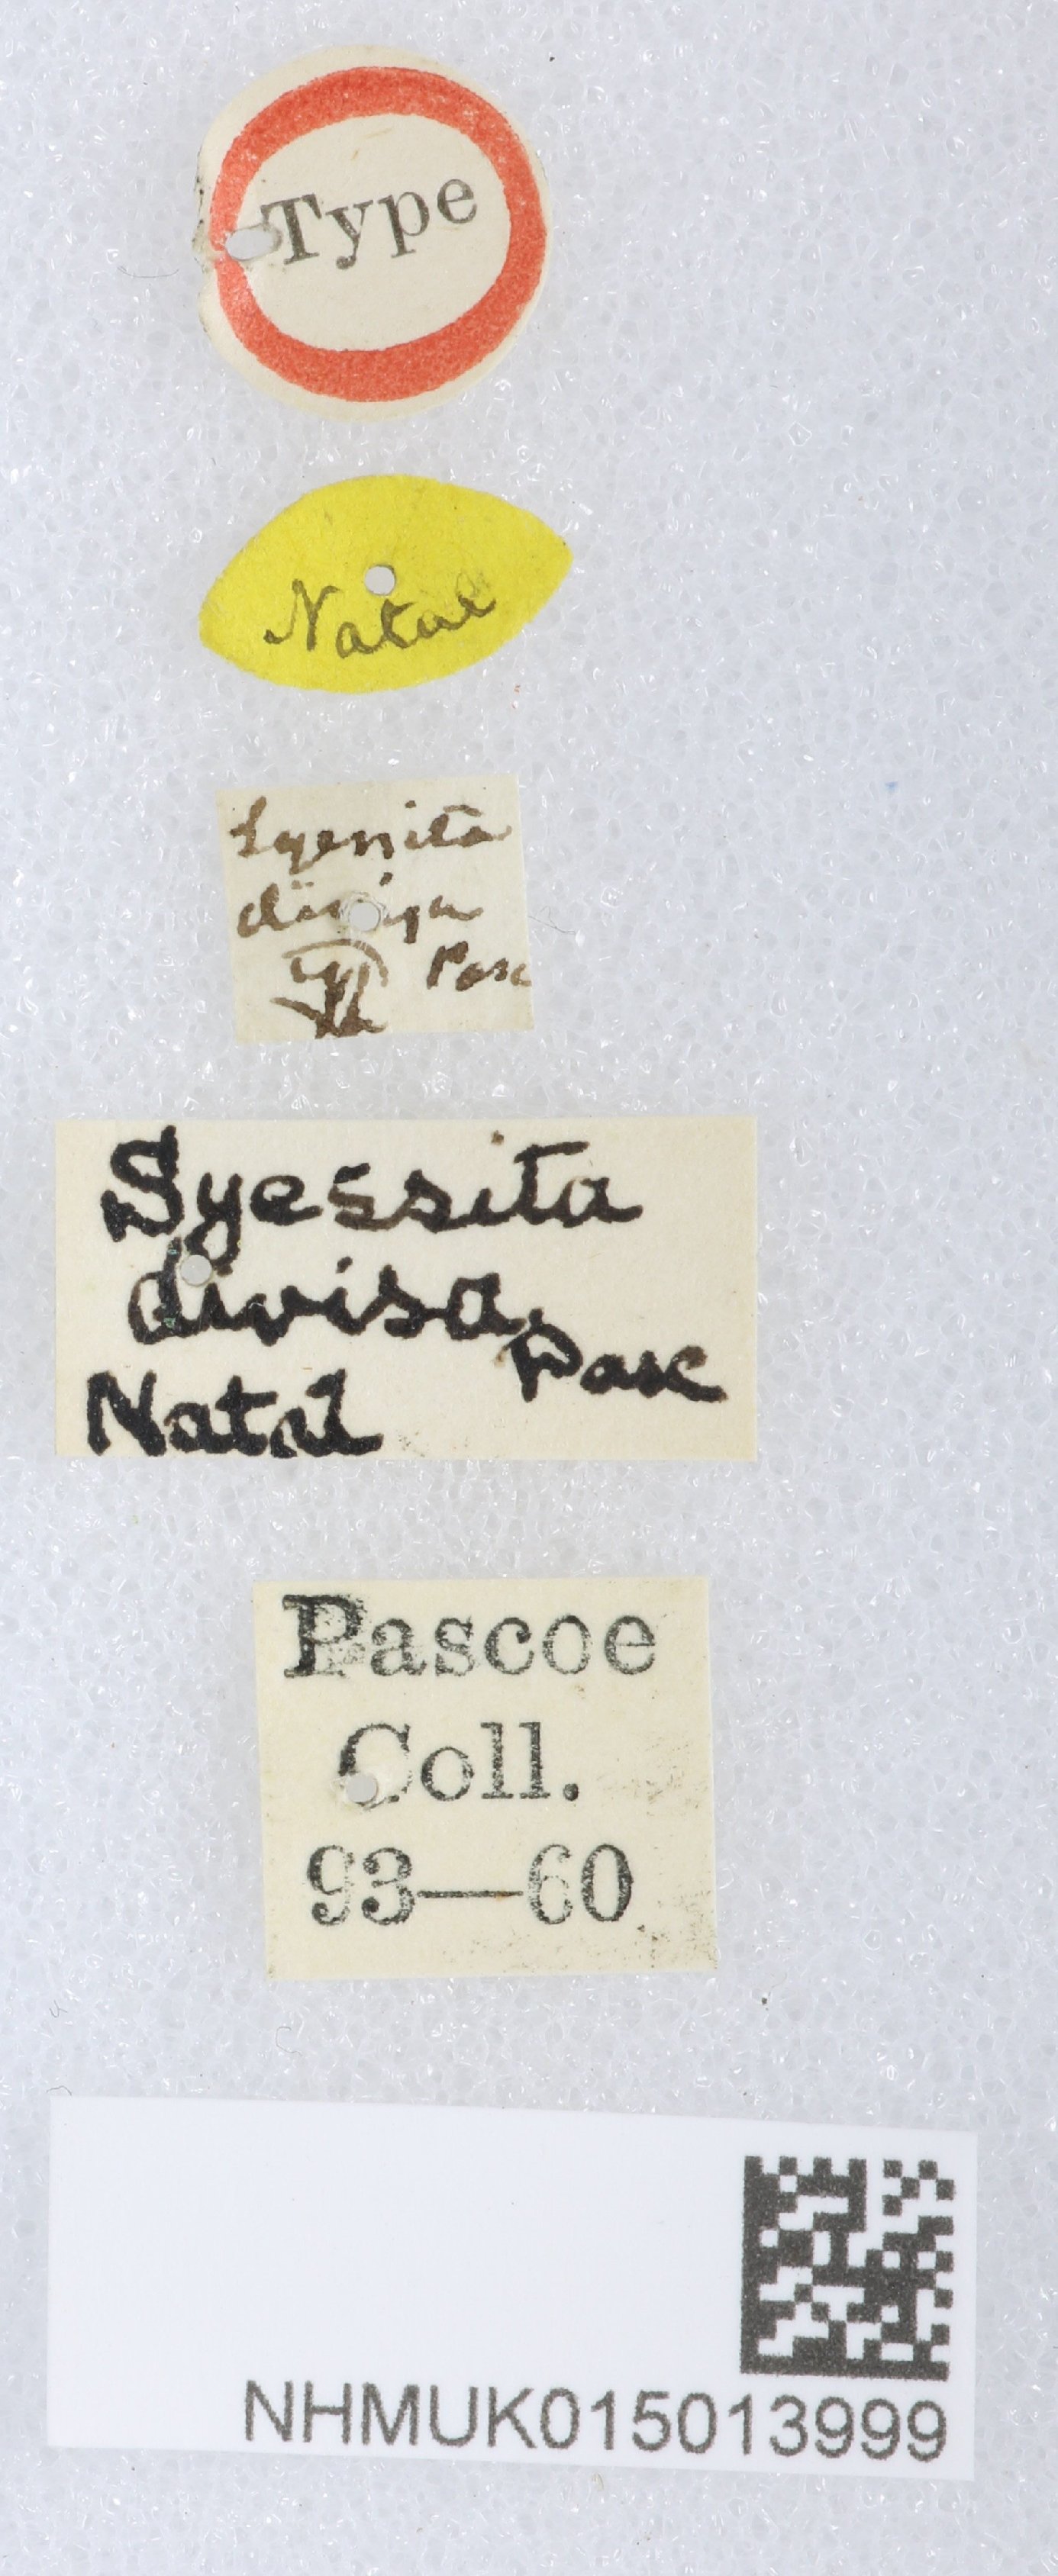 Type
Natal
Syessita
divisa
Pasc
Syessita
divisa
Pasc
Natal
Pascoe
Coll.
93—60
NHMUK015013999